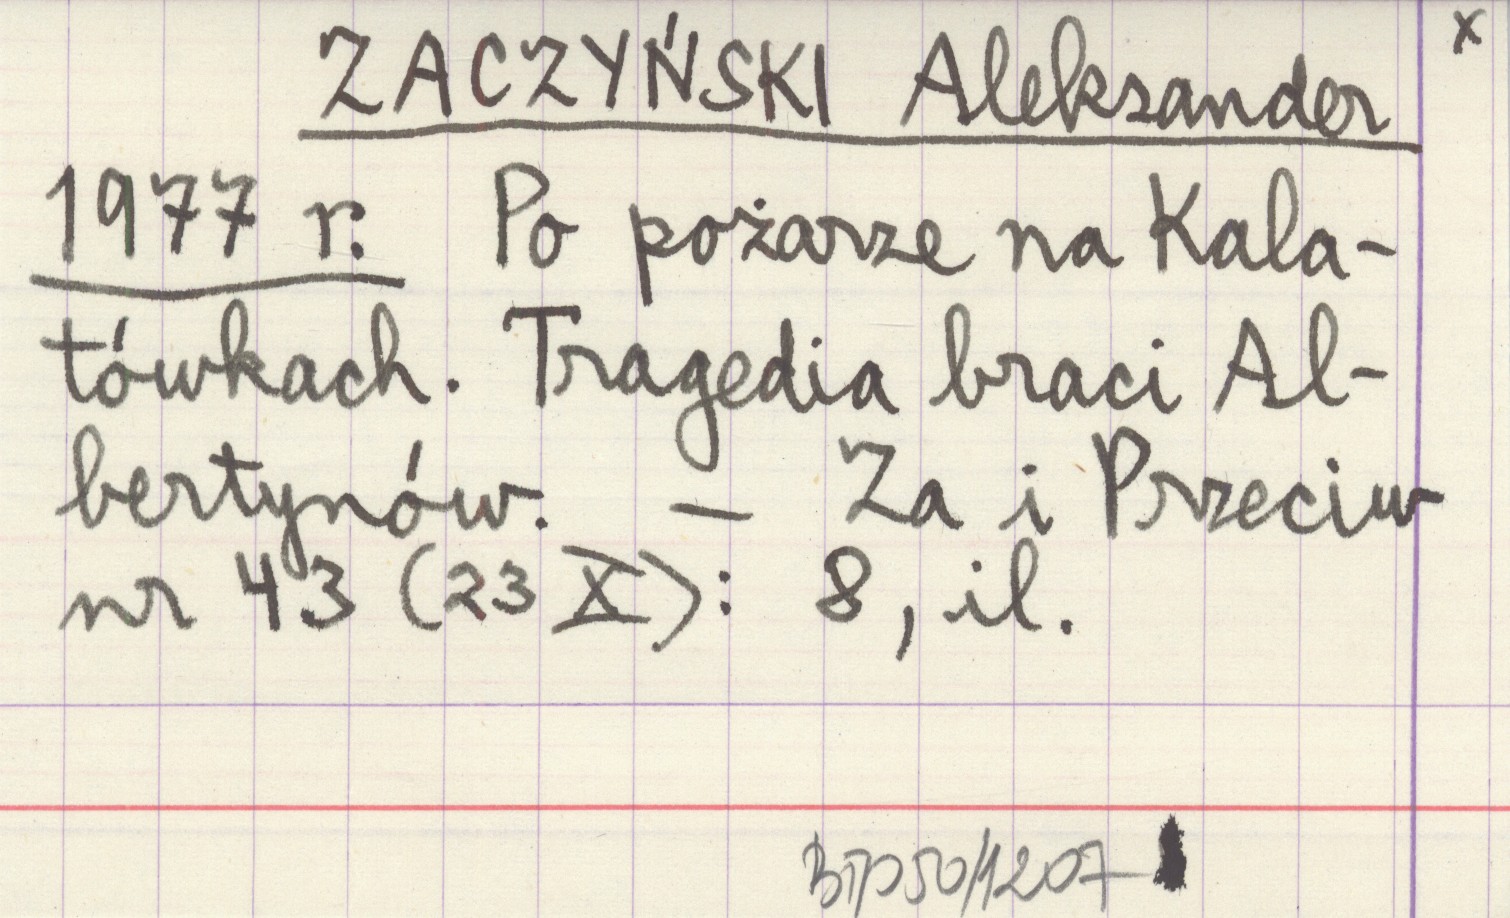 x
ZACZYŃSKI Aleksander
1977 r. Po pożarze na Kala-
tówkach. Tragedia braci Al-
bertynów. — Za i Przeciw
nr 43 (23 X): 8, il.